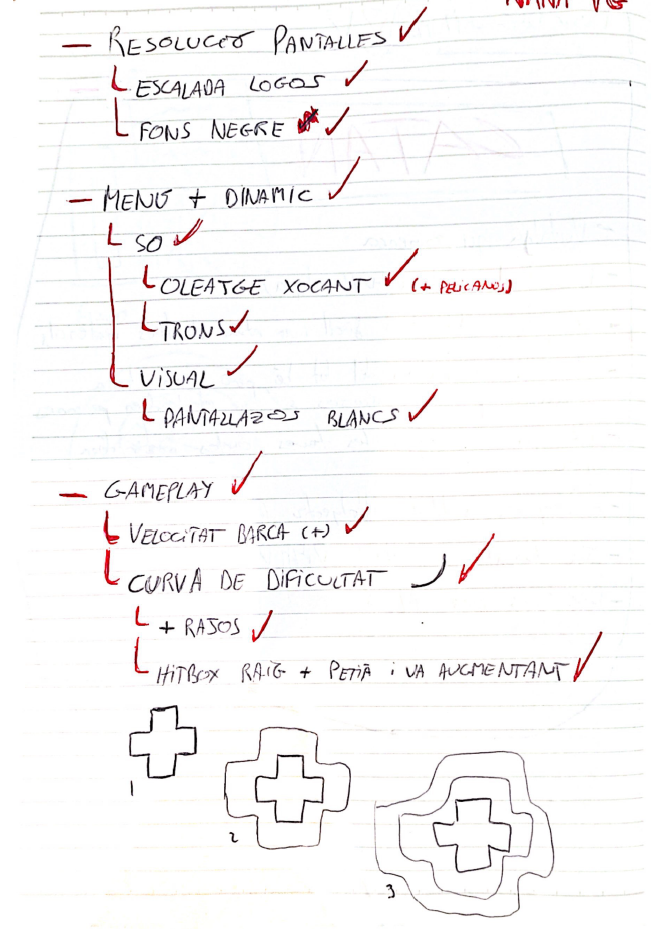 — RESOLUCIÓ PANTALLES ✓
ESCALADA LOGOS ✓
FONS NEGRE ✓
— MENÚ + DINAMIC ✓
SO ✓
OLEATGE XOCANT ✓ (+ PELICANOS)
TRONS ✓
VISUAL ✓
PANTALLAZOS BLANCS ✓
— GAMEPLAY ✓
VELOCITAT BARCA (+) ✓
CURVA DE DIFICULTAT ✓
+ RAJOS ✓
HITBOX RAIG + PETIT i VA AUGMENTANT ✓
1
2
3